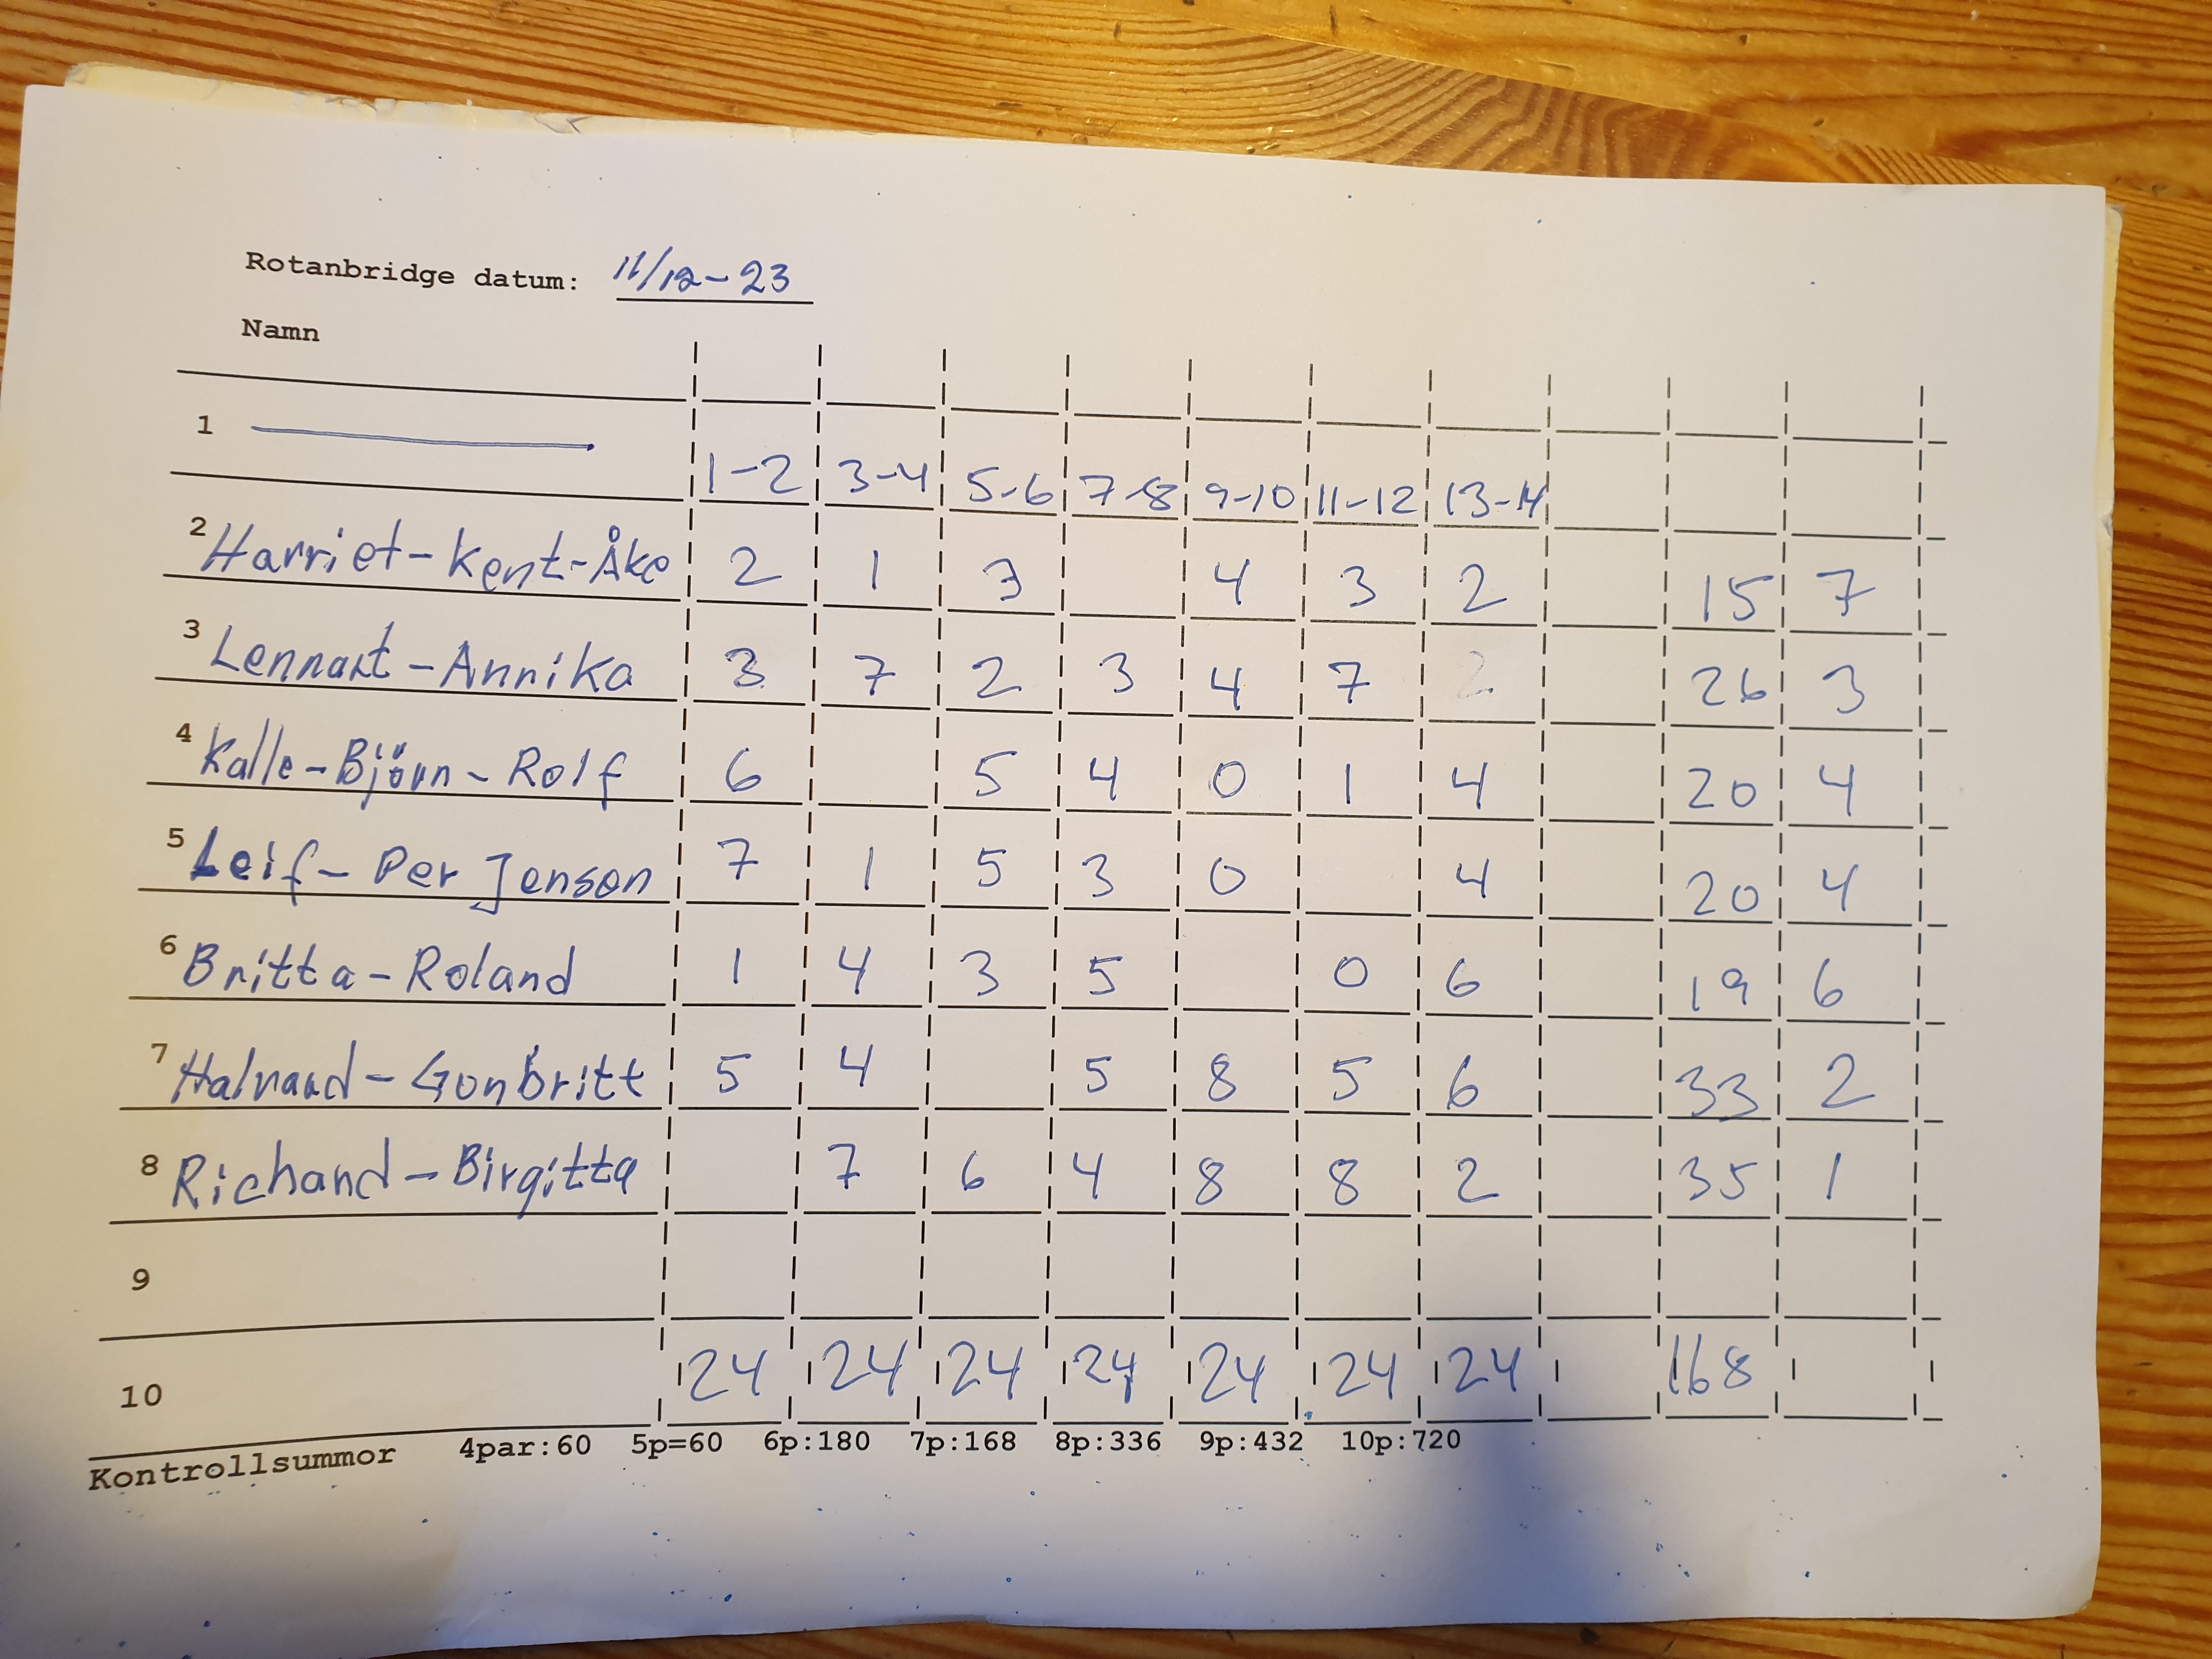 Rotanbridge datum: 11/12-23
Namn
1 1-2 3-4 5-6 7-8 9-10 11-12 13-14
2 Harriet-Kent-Åke 2 1 3 4 3 2 15 7
3 Lennart-Annika 3 7 2 3 4 7 26 3
4 Kalle-Björn-Rolf 6 5 4 0 1 4 20 4
5 Leif-Per Jenson 7 1 5 3 0 4 20 4
6 Britta-Roland 1 4 3 5 0 6 19 6
7 Halvard-Gonbritt 5 4 5 8 5 6 33 2
8 Richard-Birgitta 7 6 4 8 8 2 35 1
9
10 24 24 24 24 24 24 24 168
Kontrollsummor 4par:60 5p=60 6p:180 7p:168 8p:336 9p:432 10p:720